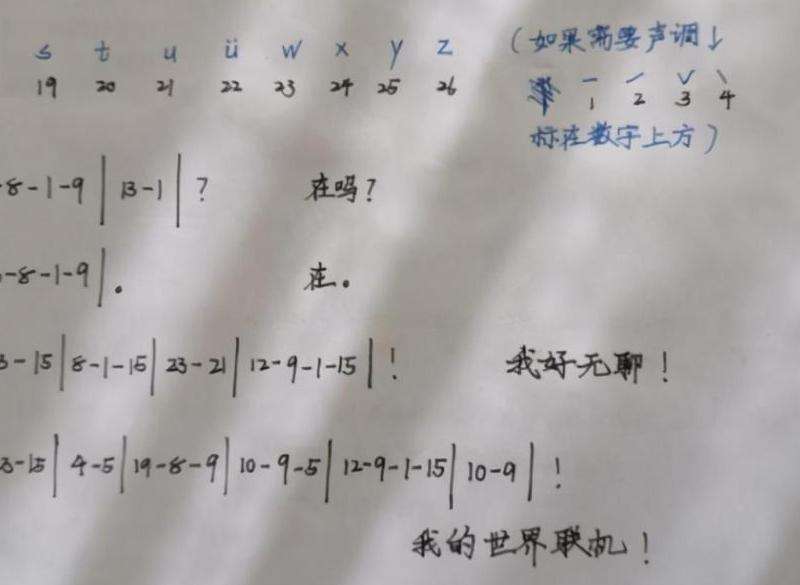 s t u ü w x y z (如果需要声调↓
19 20 21 22 23 24 25 26 1 2 3 4
标注数字上方)
8-1-9|13-1|? 在吗?
-8-1-9|. 在。
3-15|8-1-15|23-21|12-9-1-15|! 我好无聊!
3-15|4-5|19-8-9|10-9-5|12-9-1-15|10-9|!
我的世界联机!